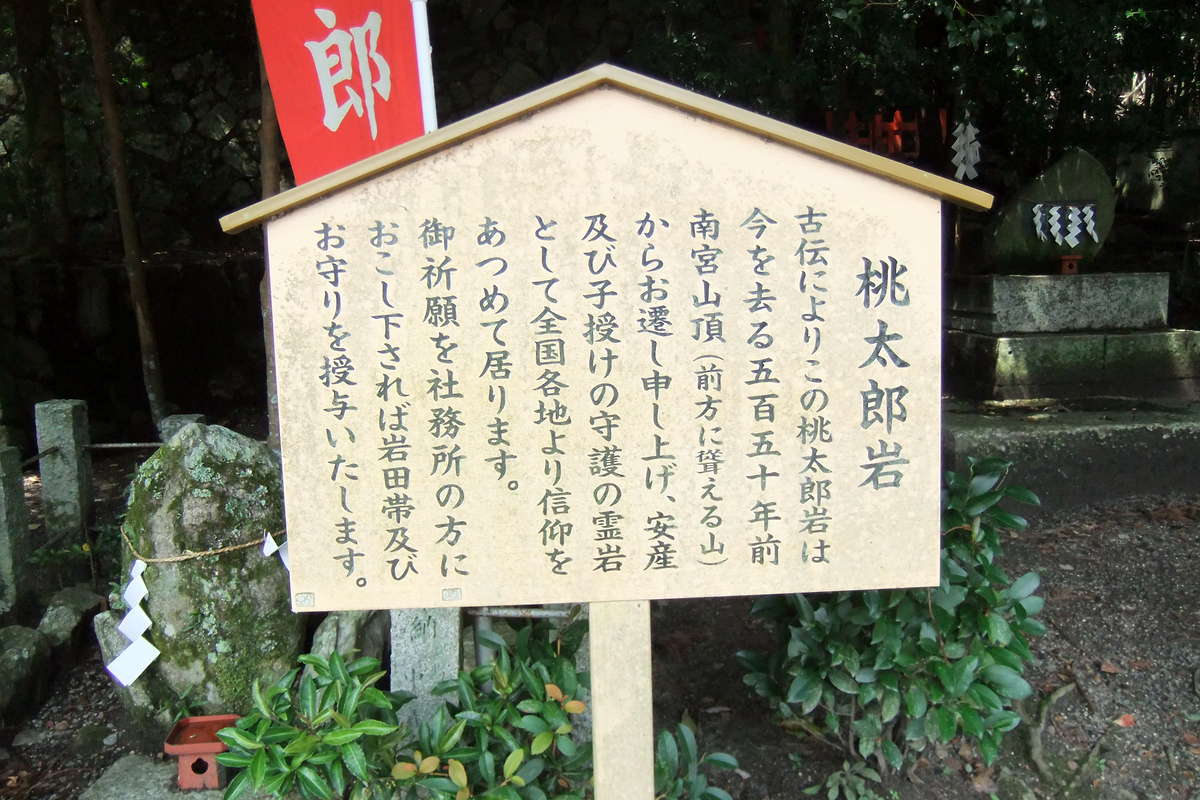 郎
桃太郎岩
古伝によりこの桃太郎岩は
今を去る五百五十年前
南宮山頂（前方に聳える山）
からお遷し申し上げ、安産
及び子授けの守護の霊岩
として全国各地より信仰を
あつめて居ります。
御祈願を社務所の方に
おこし下されば岩田帯及び
お守りを授与いたします。
納